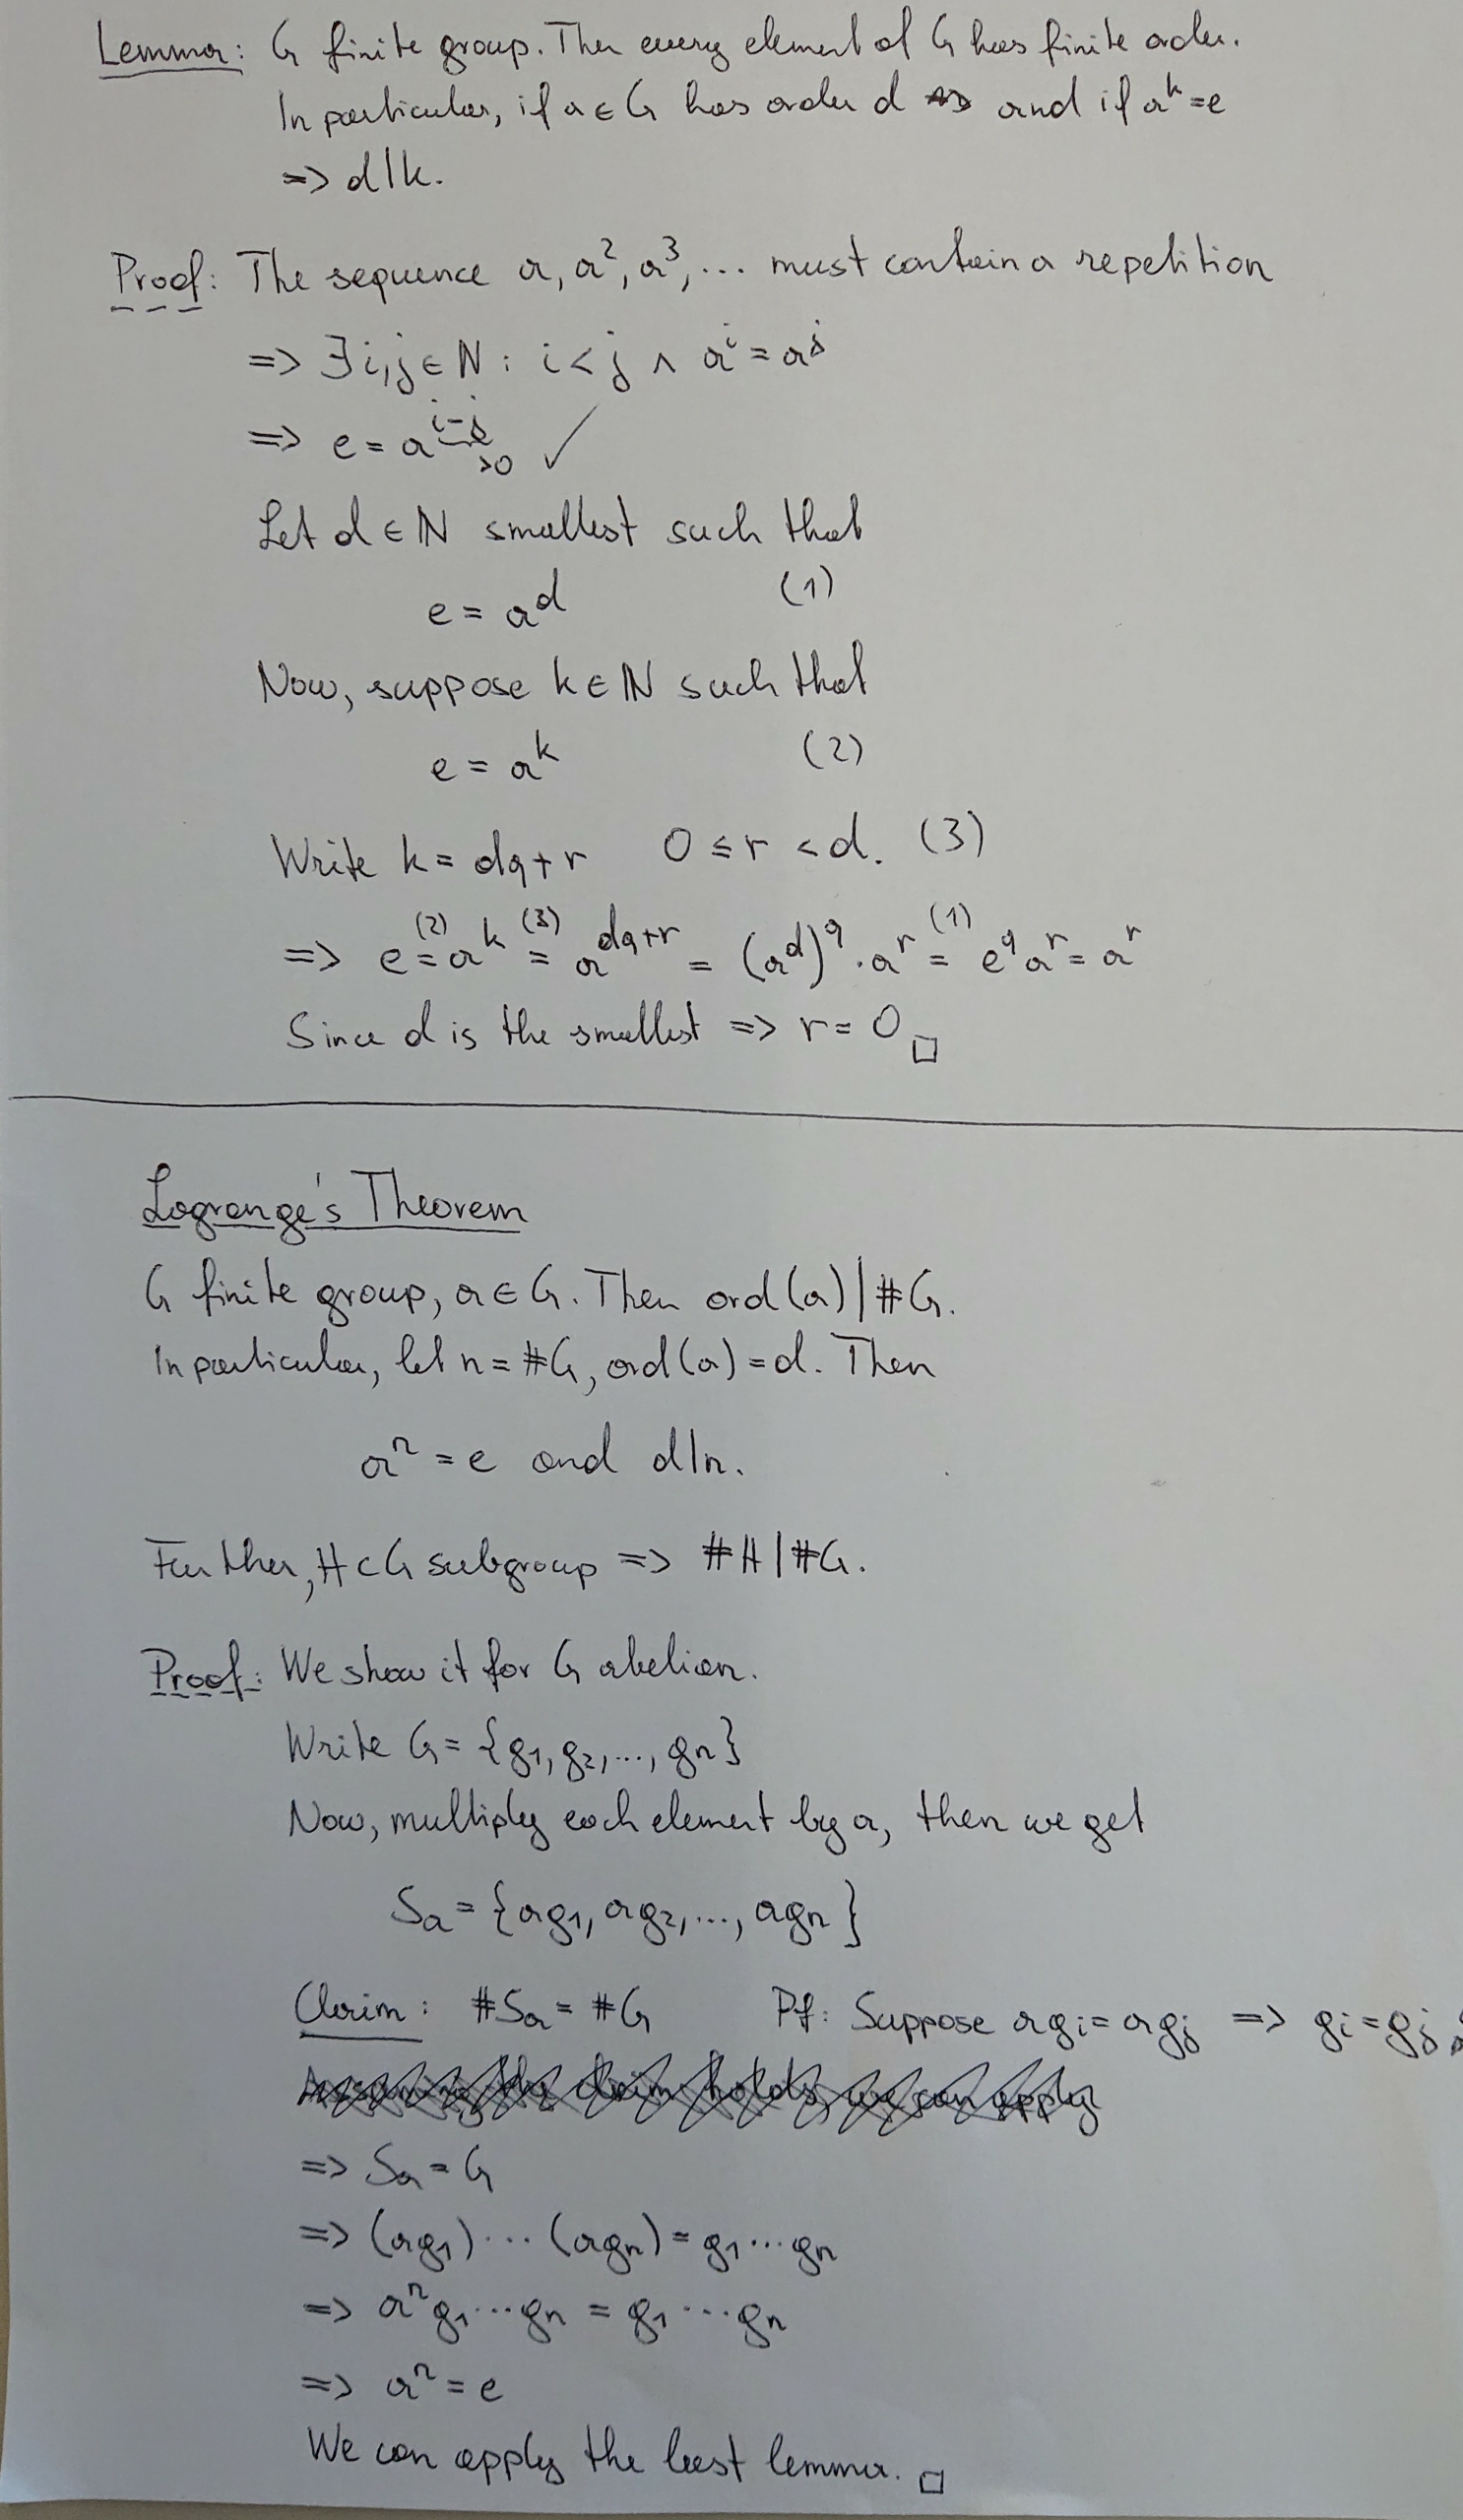 Lemma: G finite group. Then every element of G has finite order.
In particular, if a ∈ G has order d and if a^k = e
=> d|k.
Proof: The sequence a, a², a³, ... must contain a repetition
=> ∃ i,j ∈ ℕ : i < j ∧ a^i = a^j
=> e = a^{i-j} >0 ✓
Let d ∈ ℕ smallest such that
e = a^d (1)
Now, suppose k ∈ ℕ such that
e = a^k (2)
Write k = dq + r 0 ≤ r < d. (3)
=> e =^{(2)} a^k =^{(3)} a^{dq+r} = (a^d)^q · a^r =^{(1)} e^q a^r = a^r
Since d is the smallest => r = 0 □
Lagrange's Theorem
G finite group, a ∈ G. Then ord(a) | #G.
In particular, let n = #G, ord(a) = d. Then
a^n = e and d|n.
Further, H ⊂ G subgroup => #H | #G.
Proof: We show it for G abelian.
Write G = {g₁, g₂, ..., gₙ}
Now, multiply each element by a, then we get
Sₐ = {ag₁, ag₂, ..., agₙ}
Claim: #Sₐ = #G Pf: Suppose agᵢ = agⱼ => gᵢ = gⱼ
Assuming the claim holds, we can apply
=> Sₐ = G
=> (ag₁) ··· (agₙ) = g₁ ··· gₙ
=> a^n g₁ ··· gₙ = g₁ ··· gₙ
=> a^n = e
We can apply the last lemma. □